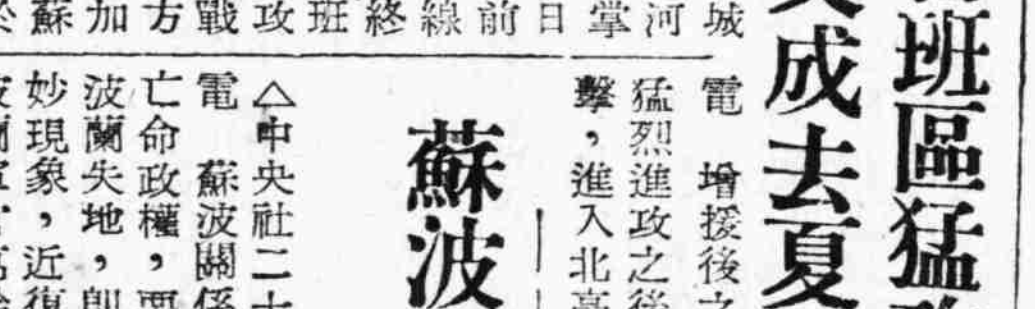 班區猛
成去夏
城
河
掌
日
前
線
終
班
攻
戰
方
加
蘇
電　增援後之
猛烈進攻之後
擊，進入北
蘇波
△中央社二十
電　蘇波關係
亡命政權，
波蘭失地，
妙現象，近復